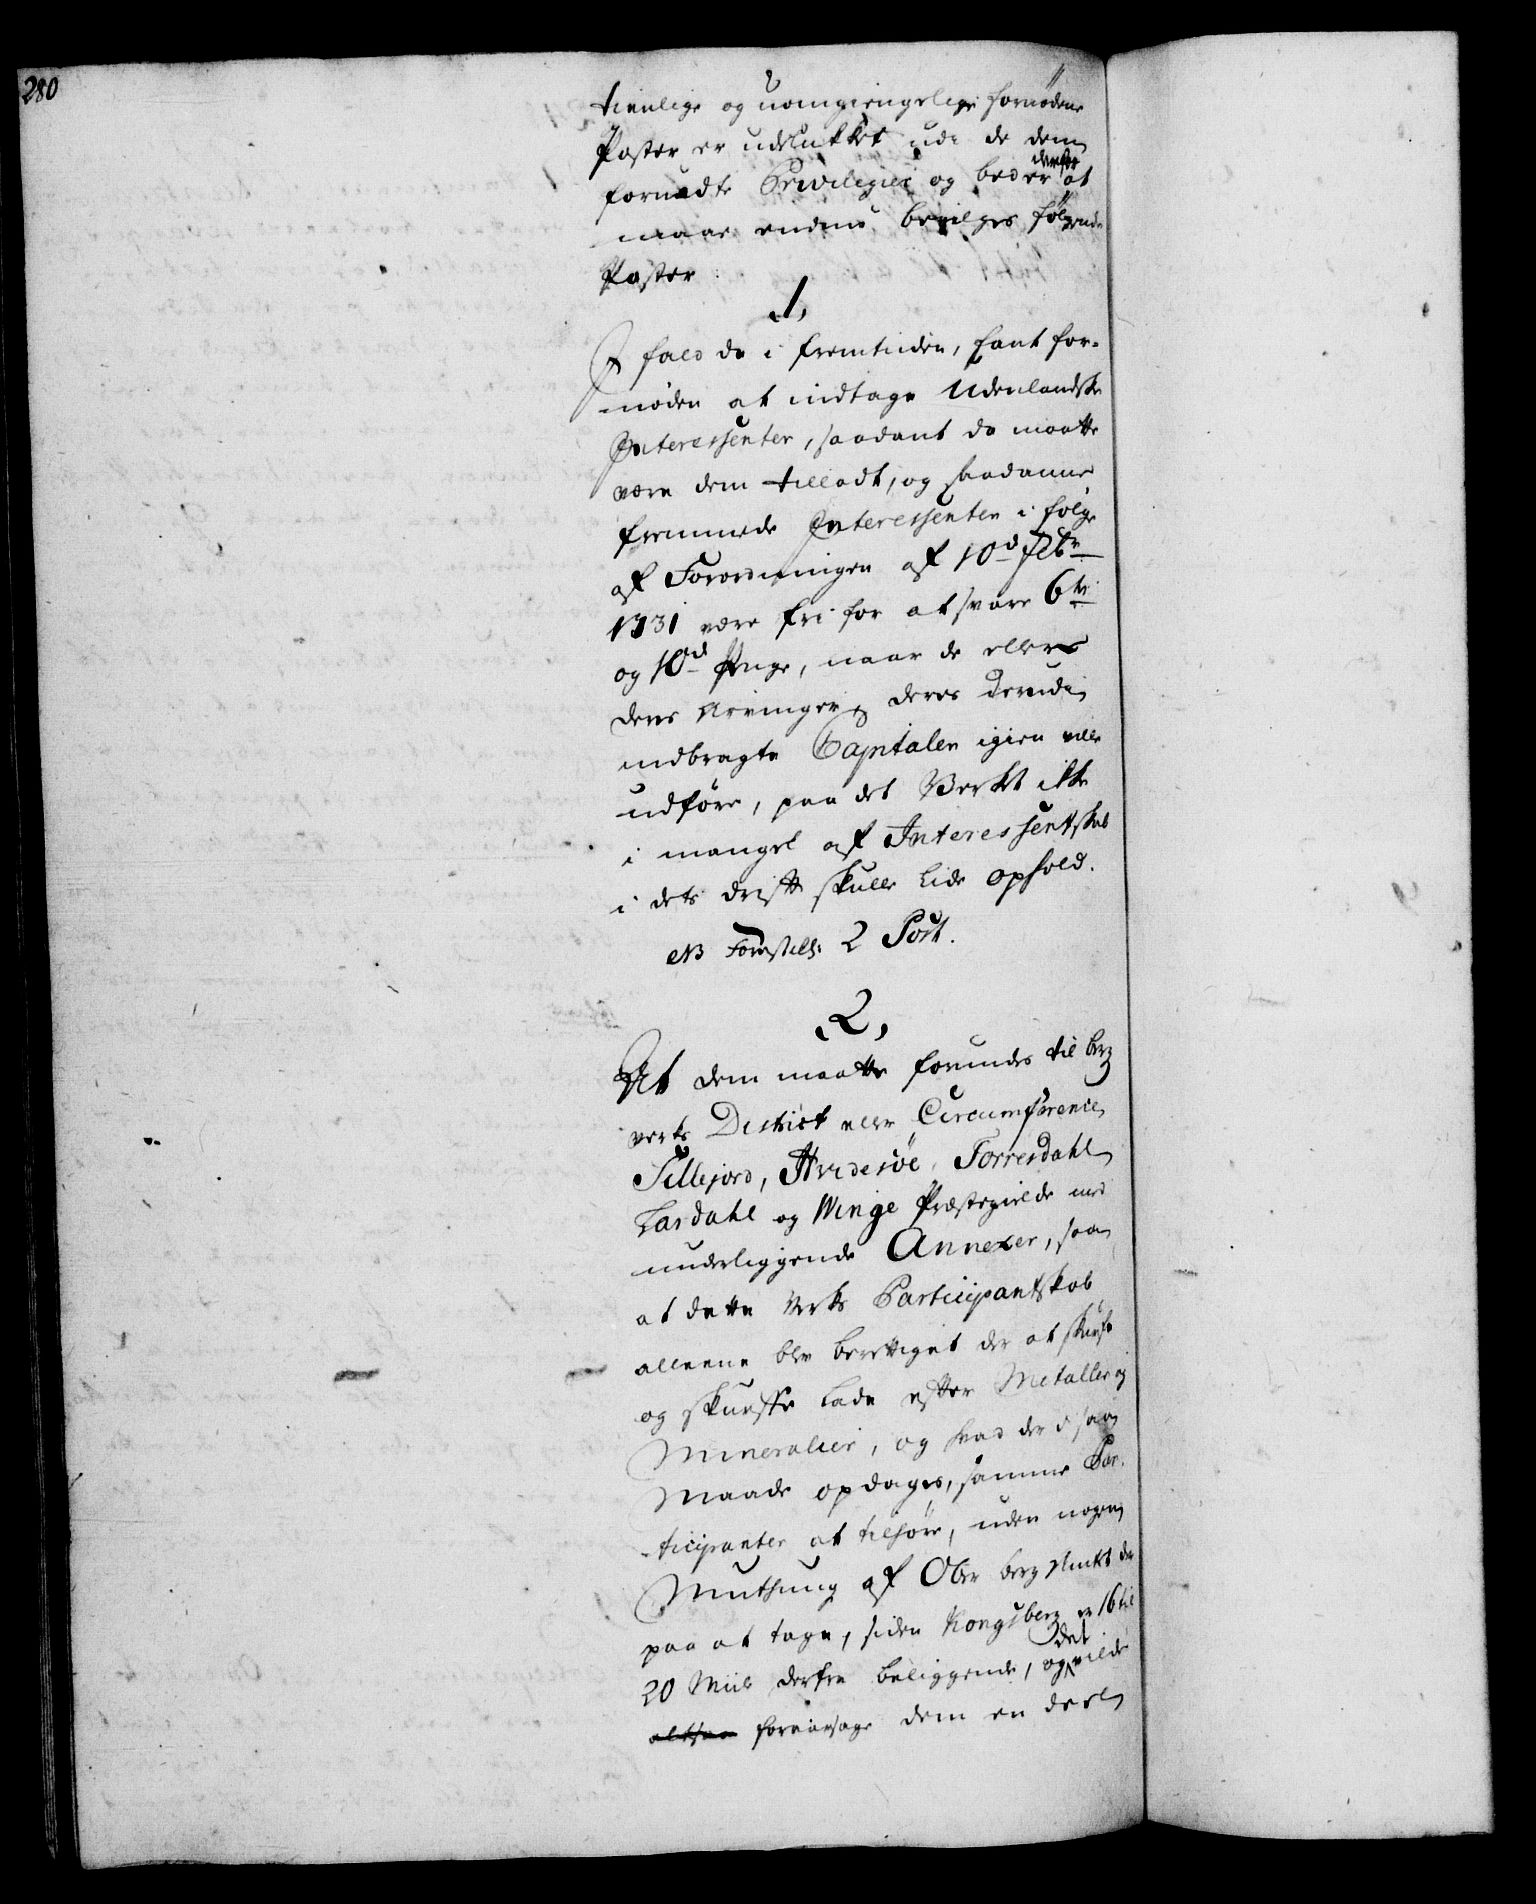 280
tienlige og uomgiengelige fornødene
Poster er udelukket udi de dem
forundte Privilegier og beder derfor at
maae endnu bevilges følgende
Poster
1,
I fald de i fremtiden, fant for-
nøden at indtage Udenlandske
Interessenter, saadant da maatte
være dem tilladt, og saadanne
fremmede Interessenter i følge
af Forordningen af 10d 7br
1731 være fri for at svare 6te
og 10d Penge, naar de eller
deres Arvinger deres derudi
indbragte Capitaler igien ville
udføre, paa det Verket ikke
i mangel af Interessentskab
i dets drift skulle lide ophold.
NB Forestill: 2 Post.
2,
At dem maatte forundes til berg
verks District eller Circumference
Sillejord, Hvidesöe, Torresdahl
Lardahl og Winje Præstegields med
underliggende Annexer, saa
at dette Verks Participantskab
alleene blev berettiget der at skurfe
og skurffe lade efter Metaller og
Mineralier, og hvad der i saa
Maade opdages, samme Par-
ticipanter at tilhøre, uden nogen
Muthung af Ober berg Amtet der
paa at tage, siden Kongsberg er 16 til
20 Miile derfra beliggende, og det vilde
altsaa foraarsage dem en deel